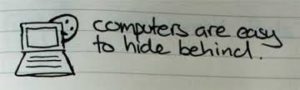 computers are easy
to hide behind.